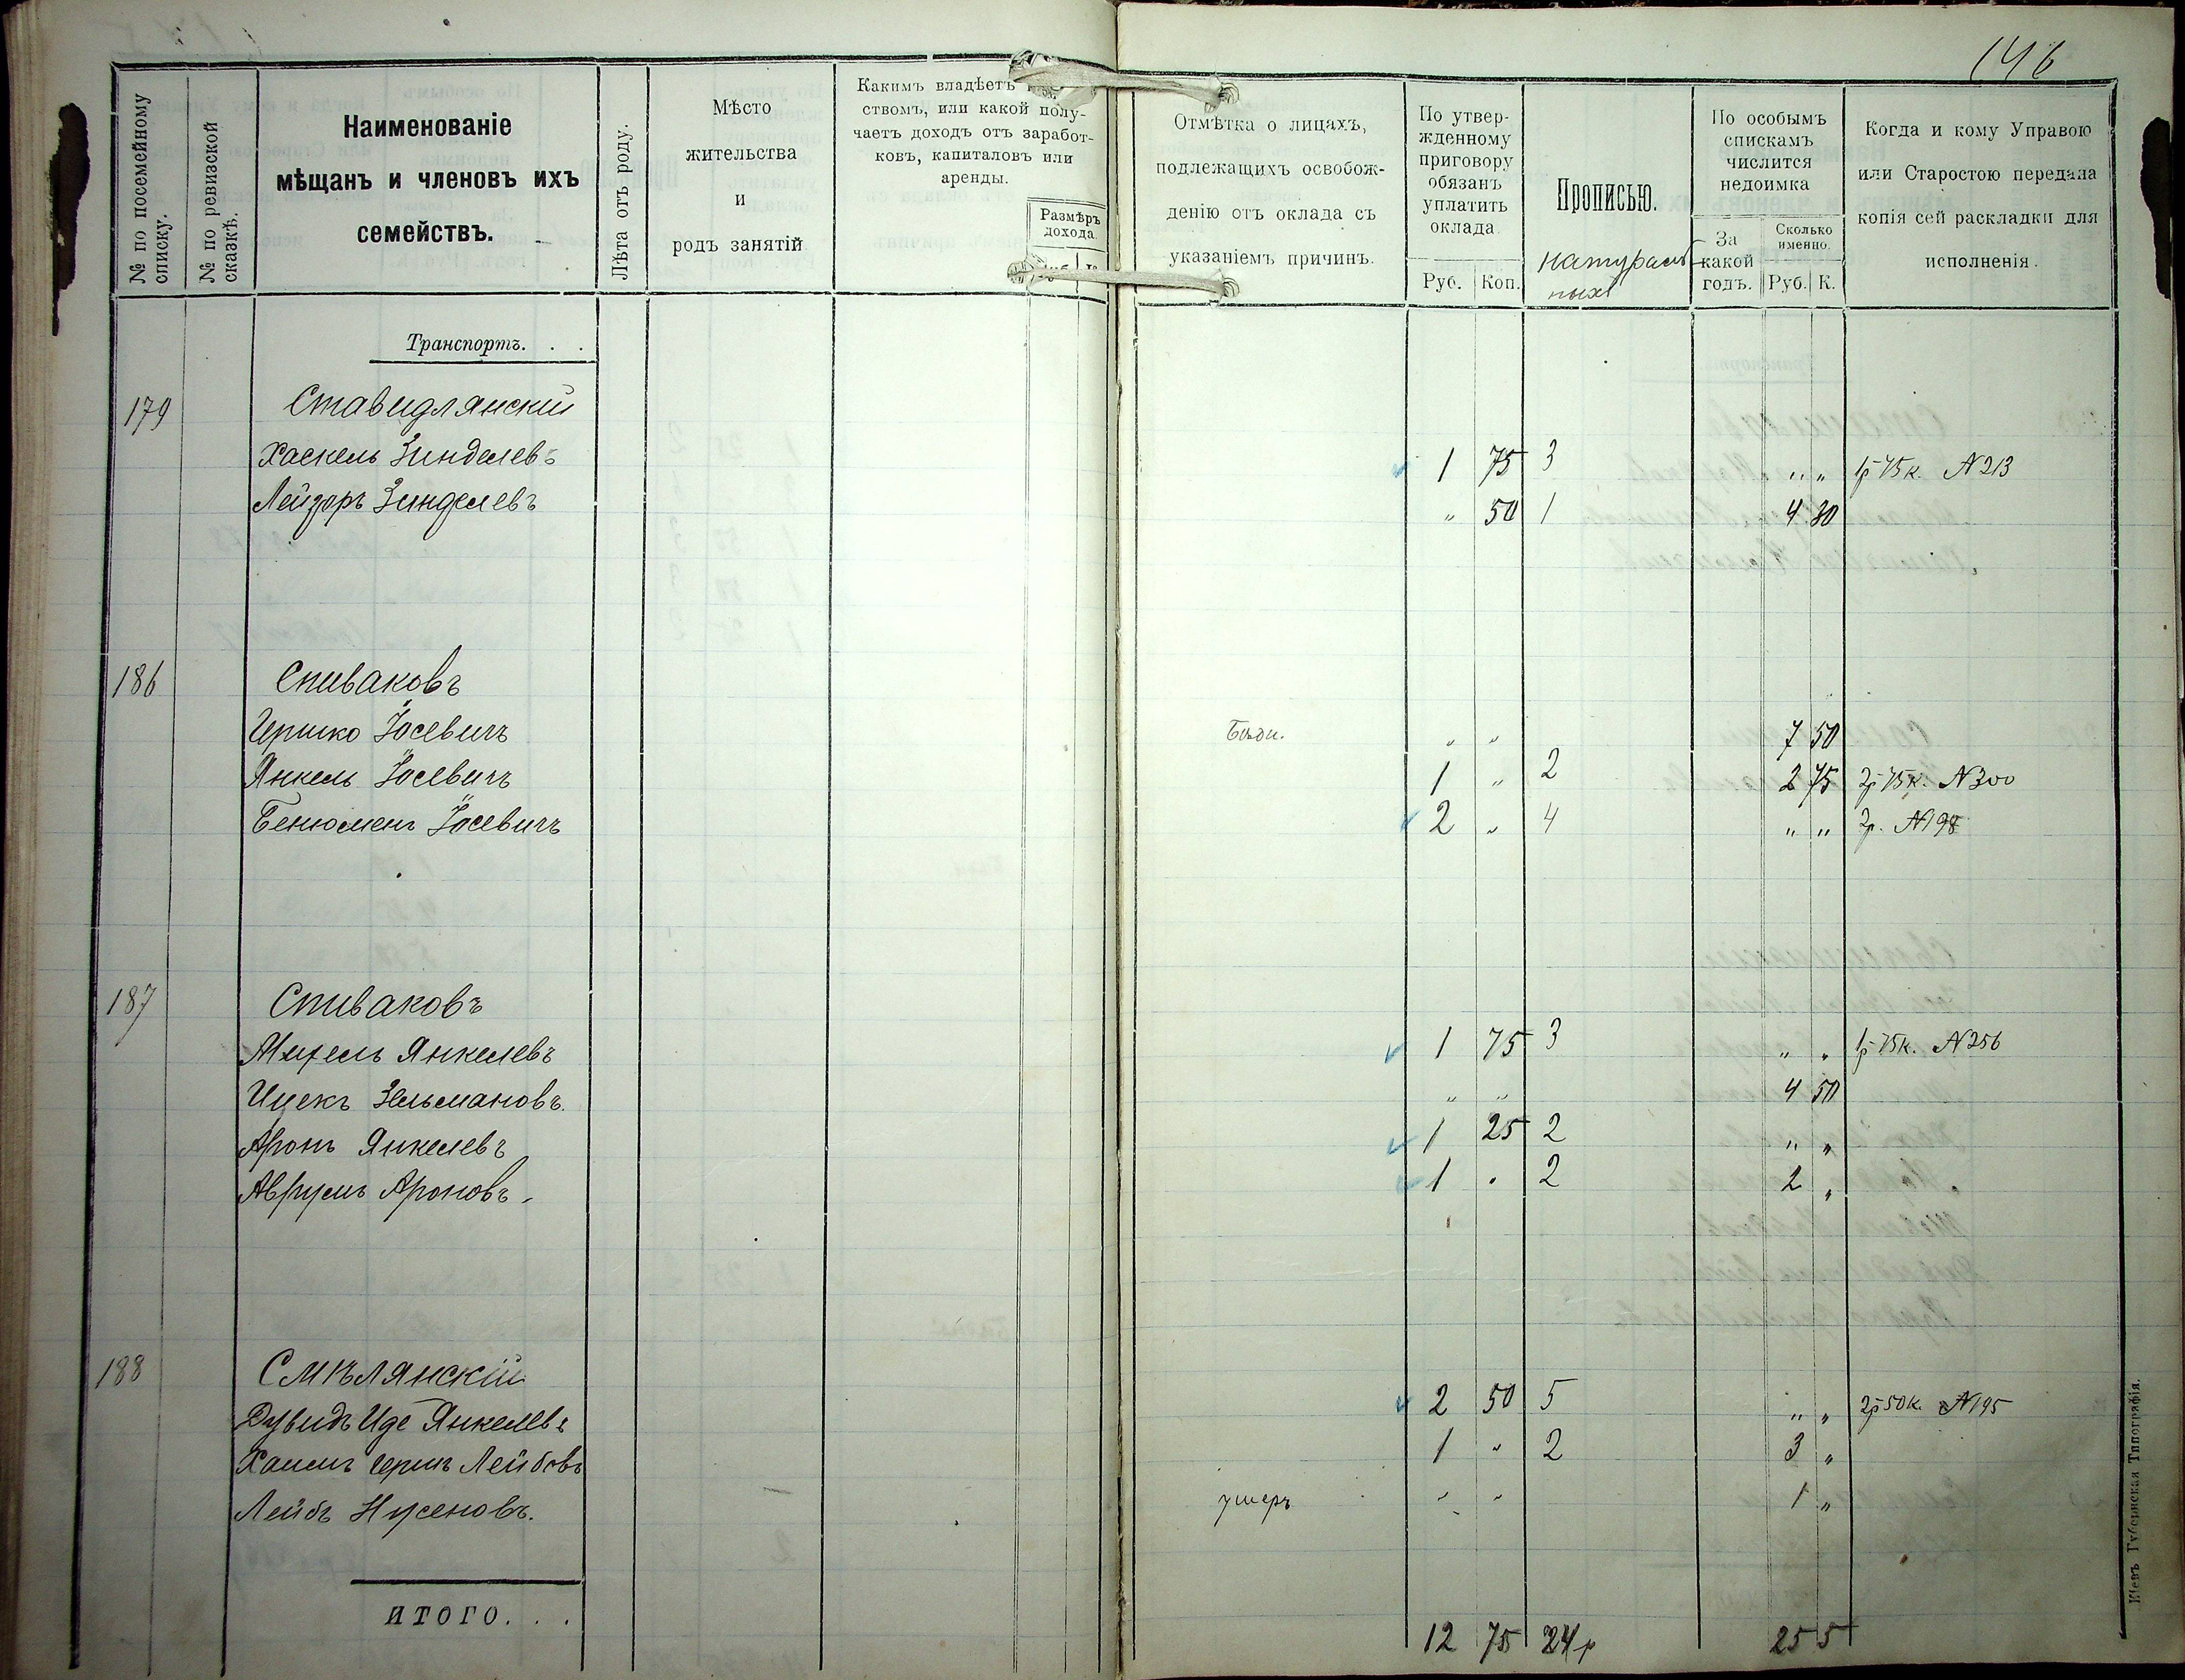 146
№ по посемейному списку.
№ по ревизской сказкѣ.
Наименованіе
мѣщанъ и членовъ ихъ
семействъ.
Лѣта отъ роду.
Мѣсто
жительства
и
родъ занятій
Какимъ владѣетъ
ствомъ, или какой полу-
чаетъ доходъ отъ заработ-
ковъ, капиталовъ или
аренды.
Размѣръ
дохода.
Отмѣтка о лицахъ,
подлежащихъ освобож-
денію отъ оклада съ
указаніемъ причинъ.
По утвер-
жденному
приговору
обязанъ
уплатить
оклада
Руб. Коп.
Прописью.
натураль
ныхъ
По особымъ
спискамъ
числится
недоимка
За
какой
годъ.
Сколько
именно.
Руб. К.
Когда и кому Управою
или Старостою передана
копія сей раскладки для
исполненія.
Транспортъ. . .
179 Ставидлянскій
Хаскель Зинделевъ 1 75 3 " " 1р 75к. N 213
Лейзоръ Зинделевъ " 50 1 4 80
186 Спиваковъ
Гершко Іосевичъ " " 7 50
Янкель Іосевичъ 1 " 2 2 75 2р 75к. N 300
Бенюменъ Іосевичъ 2 " 4 " " 2р. N 198
187 Спиваковъ
Михель Янкелевъ 1 75 3 " " 1р 75к. N 256
Ицекъ Зельмановъ. " " 4 50
Аронъ Янкелевъ 1 25 2 " "
Аврумъ Ароновъ. 1 " 2 2 "
188 Смѣлянскій
Дувидъ Иде Янкелевъ 2 50 5 " " 2р 50к. N 195
Хаимъ Гершъ Лейбовъ 1 " 2 3 "
Лейбъ Нусеновъ. умеръ " " 1 "
ИТОГО. . . 12 75 24р 25 5
Кіевъ Губернская Типографія.